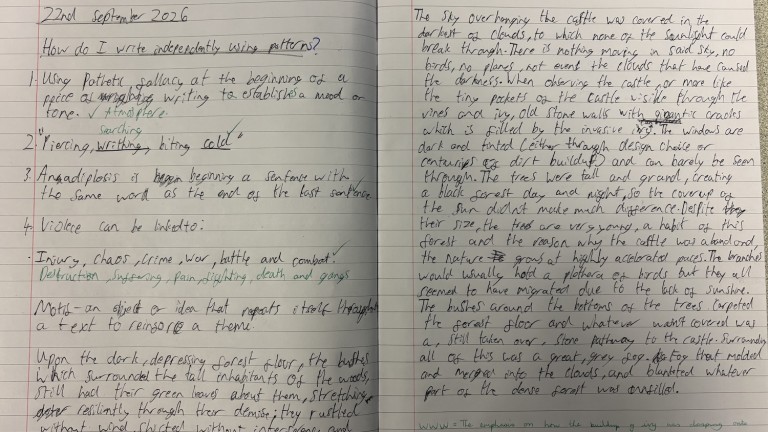 22nd september 2026
How do I write independently using patterns?
1. Using Pathetic fallacy at the beginning of a
piece of writing to establish a mood or
tone. ✓ Atmosphere
searching
2. "Piercing, writhing, biting cold"
3. Anadiplosis is beginning a sentence with
the same word as the end of the last sentence
4. Violece can be linked to:
· Injury, chaos, crime, war, battle and combat.
Destruction, suffering, pain, fighting, death and gangs
Motif - an object or idea that repeats itself throughout
a text to reinforce a theme.
Upon the dark, depressing forest floor, the bushes
which surrounded the tall inhabitants of the woods,
still had their green leaves about them, stretching
resiliently through their demise; they rustled
without wind, shifted without interference and
The sky overhanging the castle was covered in the
darkest of clouds, to which none of the sounlight could
break through. There is nothing moving in said sky, no
birds, no planes, not even the clouds that have caused
the darkness. When observing the castle, or more like
the tiny pockets of the castle visible through the
vines and ivy, old stone walls with gigantic cracks
which is filled by the invasive ivy. The windows are
dark and tinted (either through design choice or
centuries of dirt buildup) and can barely be seen
through. The trees were tall and grand, creating
a black forest day and night, so the coverup of
the sun didnt make much difference. Despite
their size, the trees are very young, a habit of this
forest and the reason why the castle was abandond,
the nature grows at highly accelorated paces. The branches
would usually hold a plethera of birds but they all
seemed to have migrated due to the lack of sunshine.
The bushes around the bottoms of the trees carpeted
the forest floor and whatever wasn't covered was
a, still taken over, stone pathway to the castle. Surrounding
all of this was a great, grey fog. A fog that molded
and merged into the clouds, and blanketed whatever
part of the dense forest was unfilled.
WWW = The emphasis on how the building